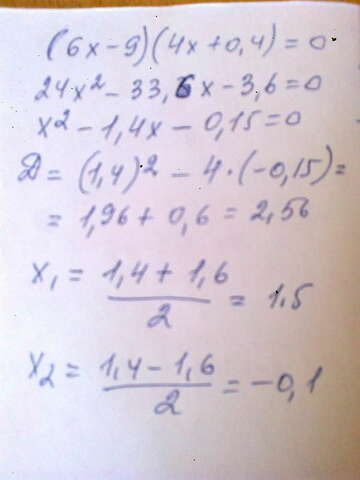 (6x-9)(4x+0,4)=0
24x²-33,6x-3,6=0
x²-1,4x-0,15=0
D=(1,4)²-4·(-0,15)=
=1,96+0,6=2,56
x₁=(1,4+1,6)/2=1.5
x₂=(1,4-1,6)/2=-0,1